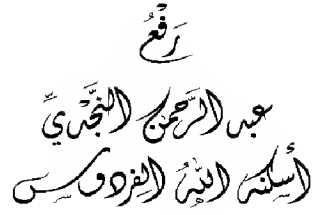 رَفْعُ
عبد الرَّحمن النَّجْديِّ
أَسكنه اللهُ الفردوس